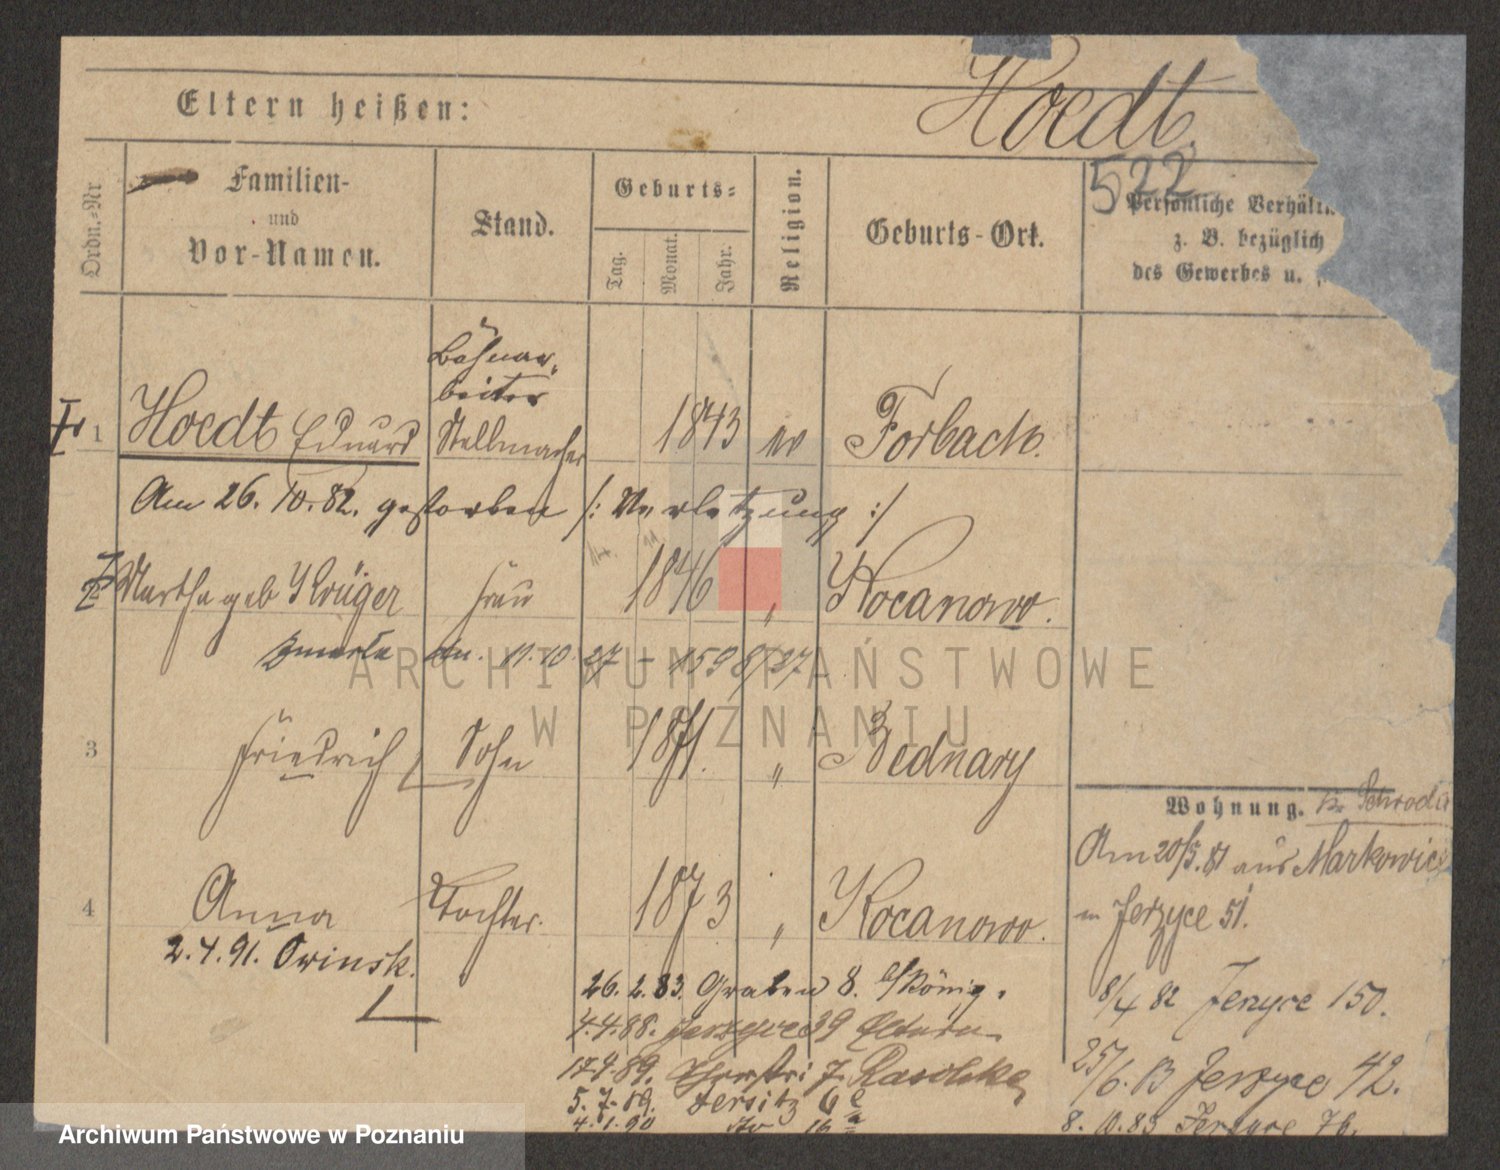 Eltern heißen:
Hoedt.
522
Ordn.-Nr
Familien-
und
Vor-Namen.
Stand.
Geburts-
Tag.
Monat.
Jahr.
Religion.
Geburts-Ort.
Persönliche Verhältn
z. B. bezüglich
des Gewerbes u.
Bahnar-
beiter
1 Hoedt Eduard Stellmacher 1843 ev Forbach.
Am 26. 10. 82. gestorben /: Verletzung :/
2 Martha geb Krüger Frau 1846 " Kocanowo.
Zmarła dn. 11.10.27 - 1598/27
3 Friedrich Sohn 1871. " Bednary
4 Anna Tochter. 1873 " Kocanowo.
2.4.91. Owinsk.
26.2.83. Graben 8. b/König.
4.4.88. Jerzyce 39 Eltern
17.4.89. 7. Raschke
5.7.89. Jersitz 6
4.1.90 do 16
Wohnung. Kr. Schroda
Am 20/5. 81 aus Markowice
in Jerzyce 51.
8/4 82 Jerzyce 150.
25/6. 83 Jerzyce 42.
8.10.83 Jerzyce 76.
ARCHIWUM PAŃSTWOWE
W POZNANIU
Archiwum Państwowe w Poznaniu